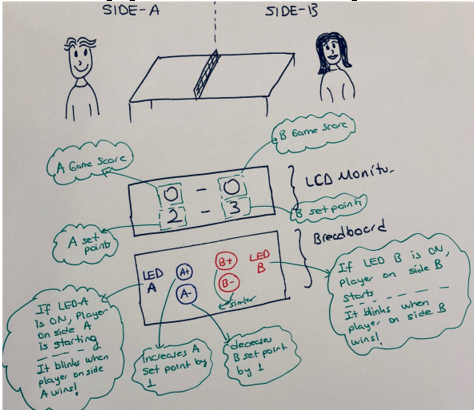 SIDE-A
SIDE-B
A Game Score
B Game Score
0 - 0
2 - 3
LCD Monitor
A set
point
B set point
Breedboard
LED
A
A+
A-
B+
B-
LED
B
similar
If LED-A
is ON, Player
on side A
is starting
It blinks when
player on side
A wins!
increases A
set point by
1
deceases
B set point
by 1
If LED B is ON,
Player on side B
starts
It blinks when
player on side B
wins!